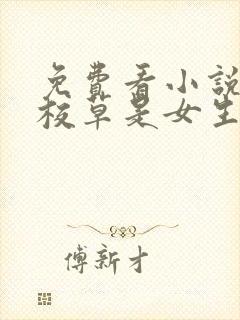 免費看小說
校草是女生
傅新才